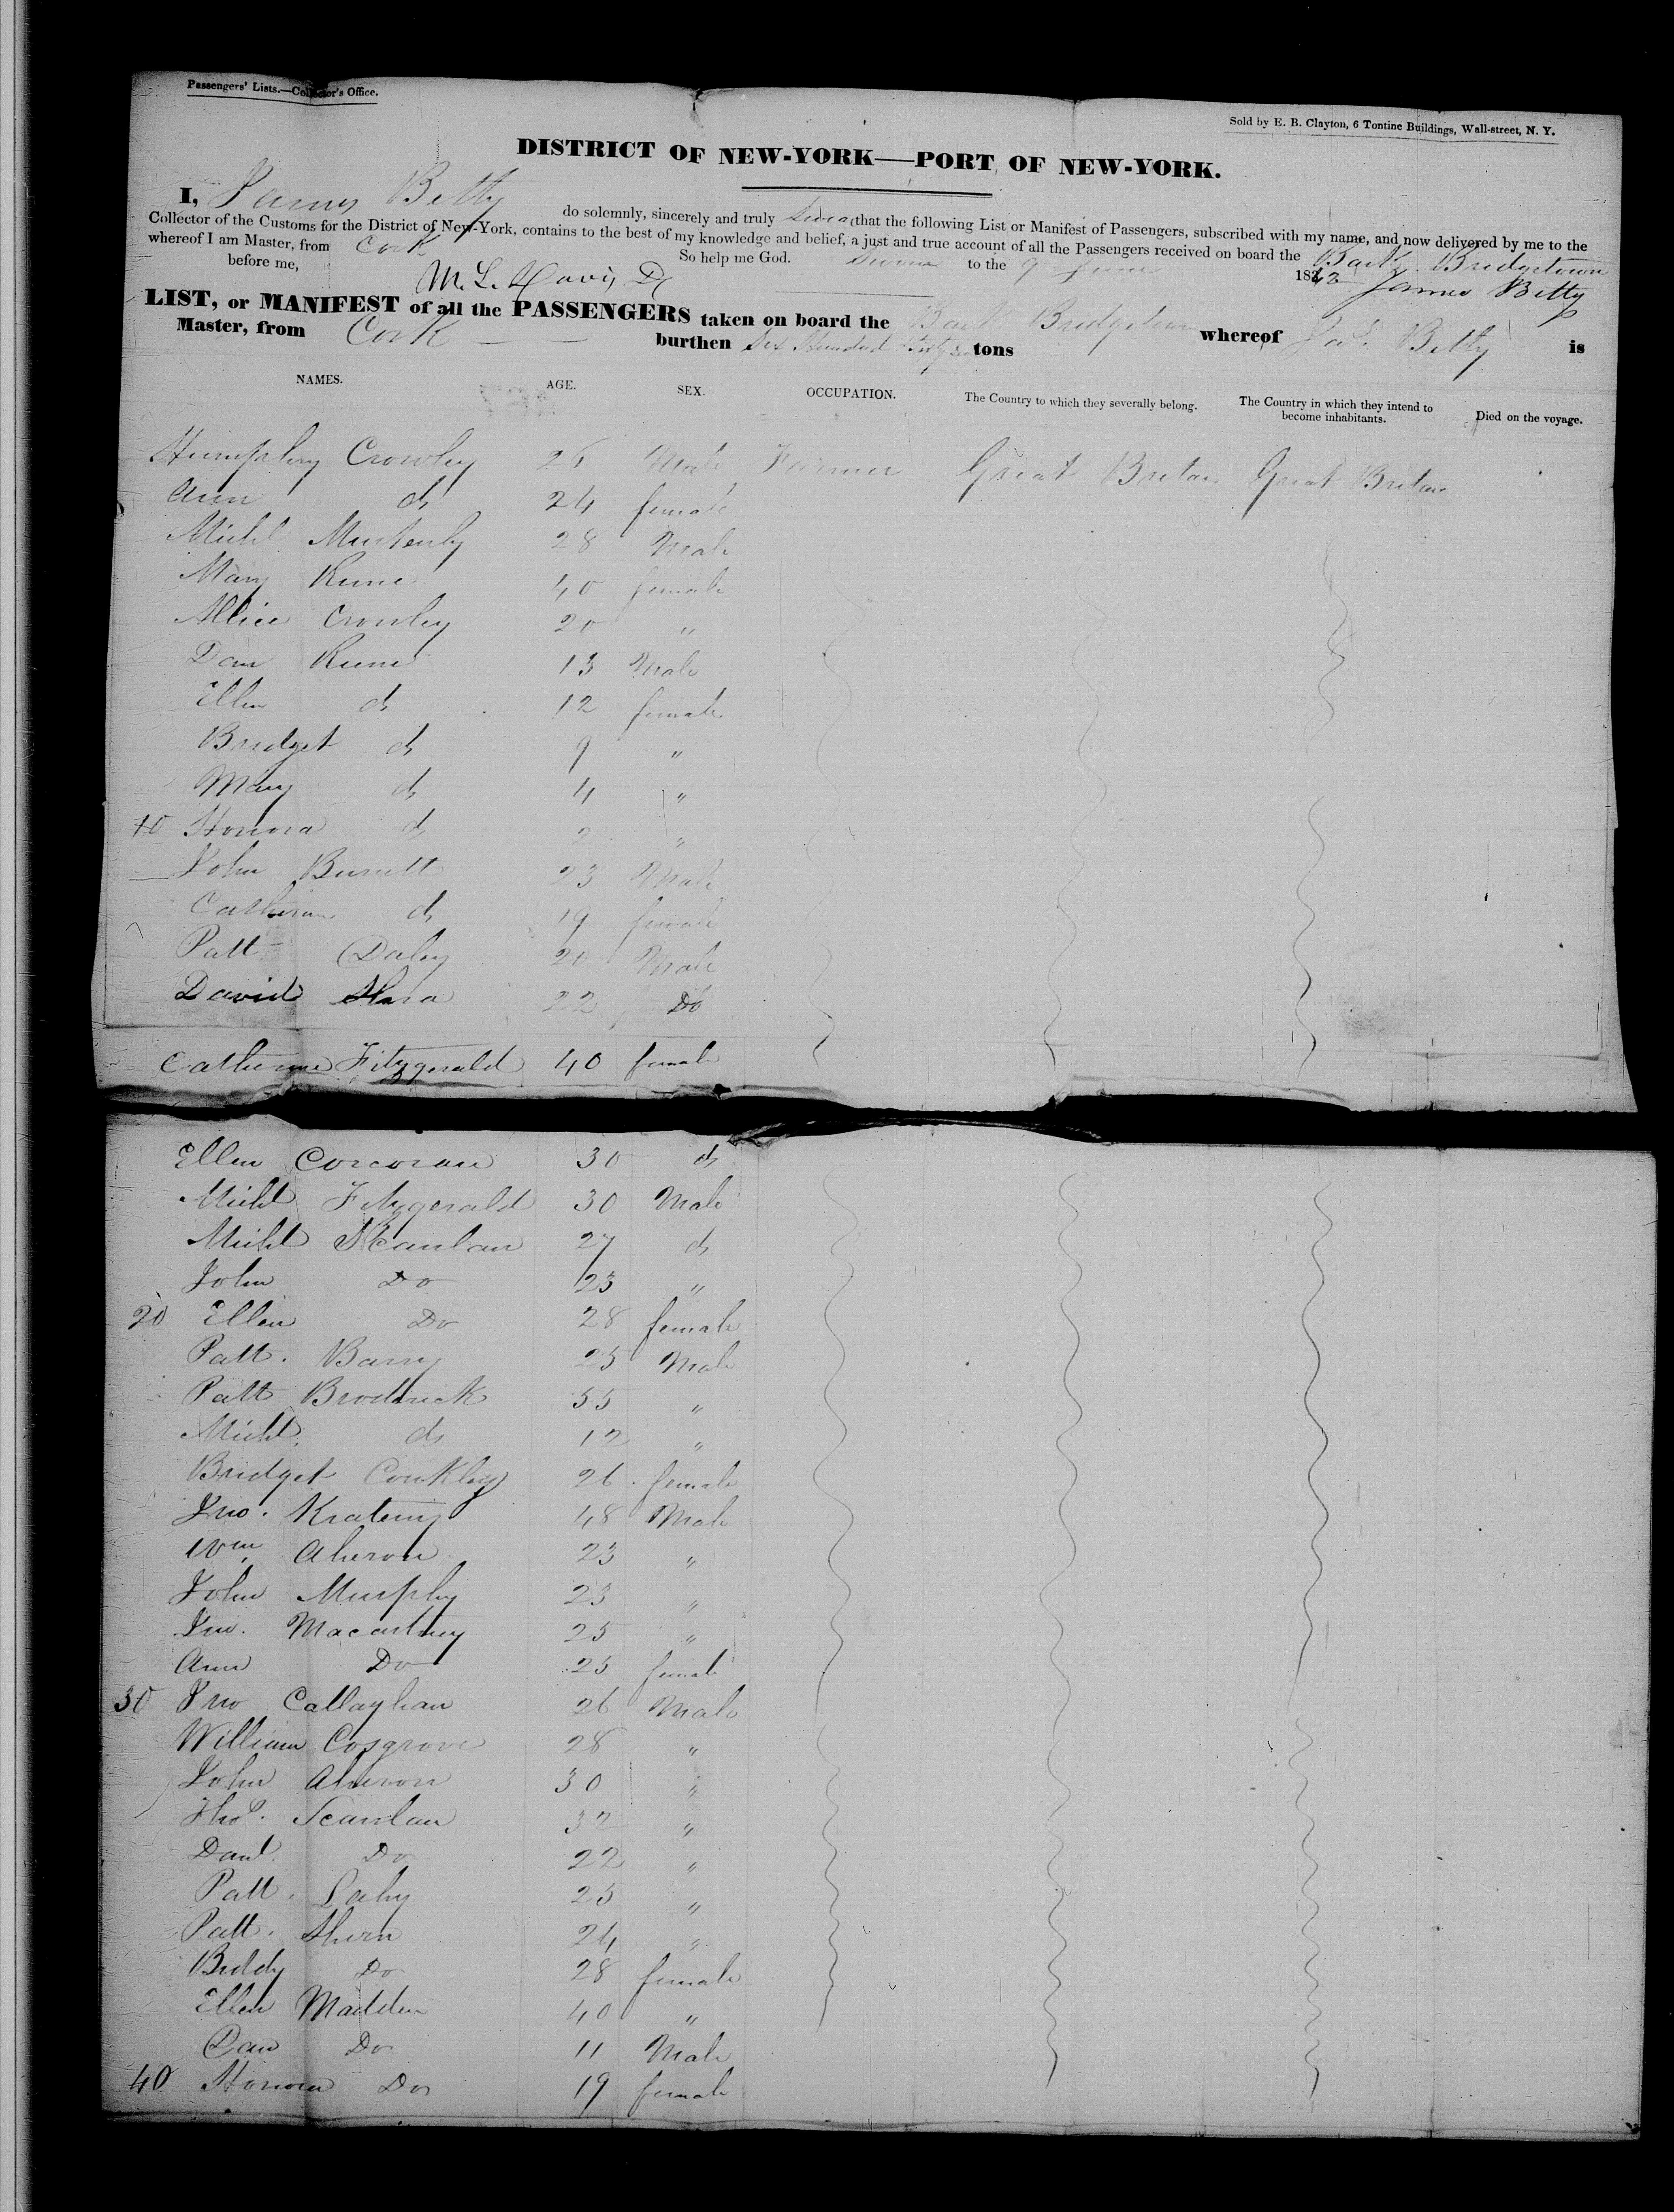 Passengers' Lists.—Collector's Office.
Sold by E. B. Clayton, 6 Tontine Buildings, Wall-street, N. Y.
DISTRICT OF NEW-YORK—PORT OF NEW-YORK.
I, James Betty do solemnly, sincerely and truly swear that the following List or Manifest of Passengers, subscribed with my name, and now delivered by me to the
Collector of the Customs for the District of New-York, contains to the best of my knowledge and belief, a just and true account of all the Passengers received on board the Bark Bridgetown
whereof I am Master, from Cork So help me God. Sworn to the 9 June 1842 James Betty
before me, M. L. Davis
LIST, or MANIFEST of all the PASSENGERS taken on board the Bark Bridgetown whereof Jas. Betty is
Master, from Cork burthen Six Hundred tons
NAMES. AGE. SEX. OCCUPATION. The Country to which they severally belong. The Country in which they intend to become inhabitants. Died on the voyage.
Humphrey Crowley 26 Male Farmer Great Britan Great Britan
Ann do 24 female
Michl 28 Male
Mary 40 female
Allice Crowley 20 "
Dan 13 Male
Ellen do 12 female
Bridget do 9 "
Mary do 4 "
10 Honora do 2 "
John 23 Male
Catherine do 19 female
Patt Daley 20 Male
David 22 Do
Catherine Fitzgerald 40 female
Ellen Corcoran 30 do
Michl Fitzgerald 30 Male
Michl Scanlan 27 do
John Do 23 "
20 Ellen Do 28 female
Patt. Barry 25 Male
Patt Brodrick 55 "
Michl. do 12 "
Bridget Conkley 26 female
Jno. 48 Male
Wm. Aheron 23 "
John Murphy 23 "
Jno. Macartney 25 "
Ann Do 25 female
30 Jno Callaghan 26 Male
William Cosgrove 28 "
John Aheron 30 "
Thos. Scanlan 32 "
Danl. Do 22 "
Patt. 25 "
Patt. Ahern 24 "
Biddy Do 28 female
Ellen Madden 40 "
Dan Do 11 Male
40 Honora Do 19 female